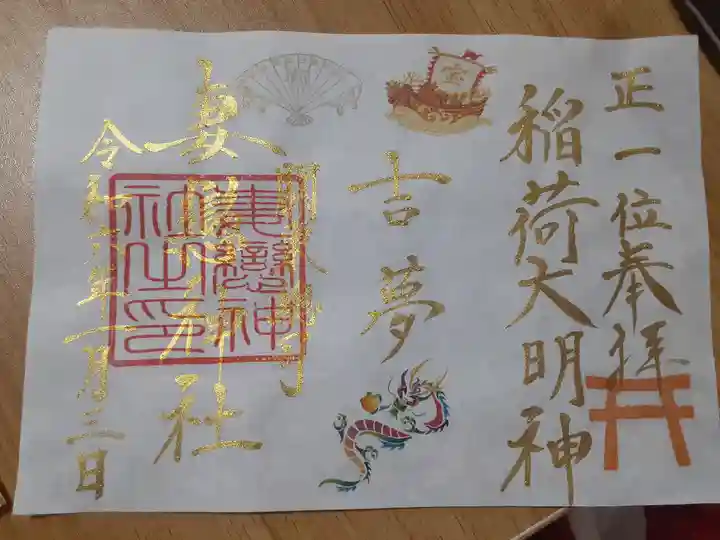 正一位奉拝
稲荷大明神
宝
吉夢
妻戀神社之印
妻恋神社
令和六年一月三日